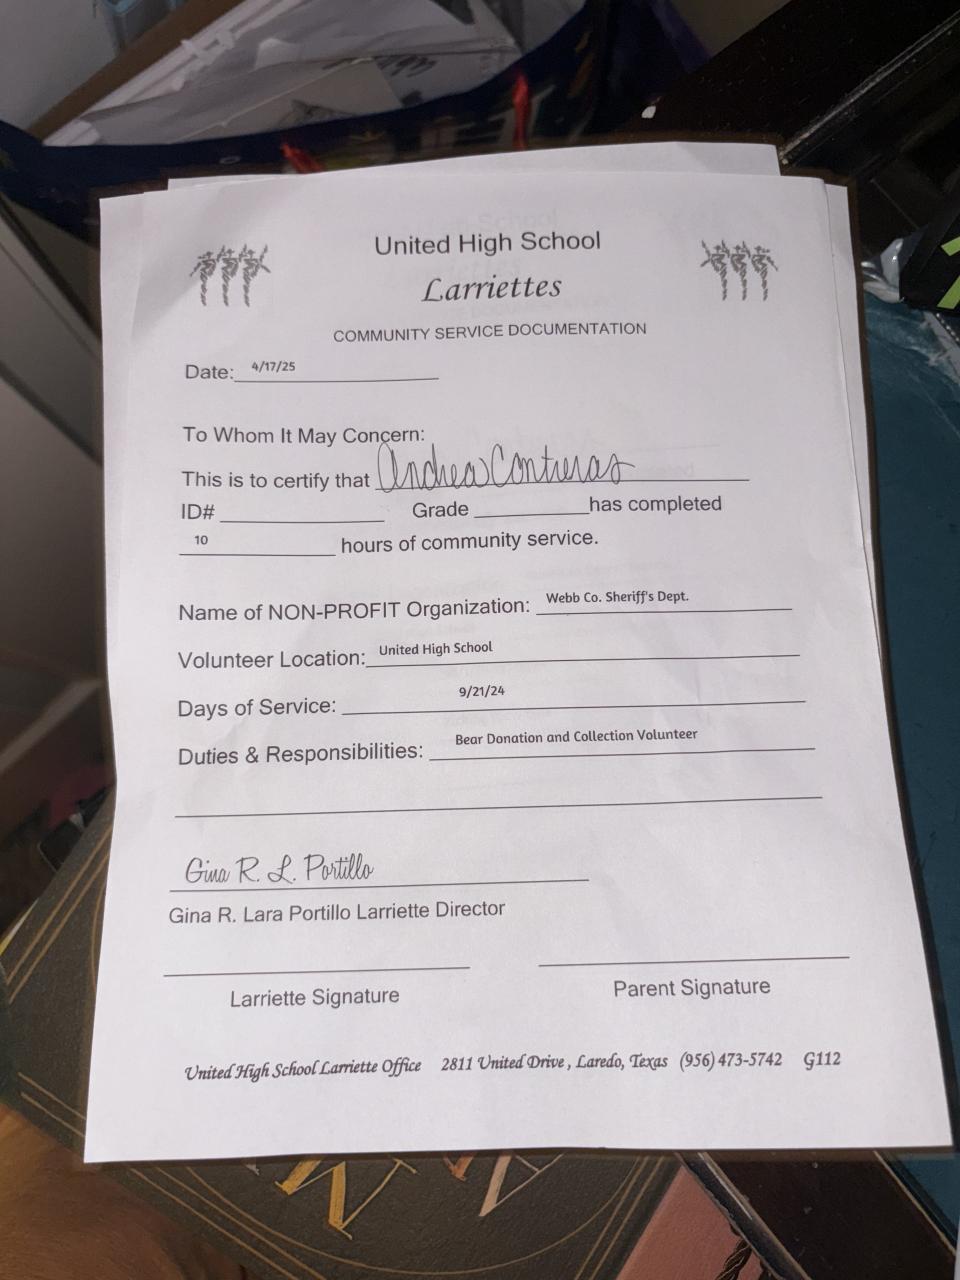 United High School
Larriettes
COMMUNITY SERVICE DOCUMENTATION
Date: 4/17/25
To Whom It May Concern:
This is to certify that Andrea Contreras
ID# Grade has completed
10 hours of community service.
Name of NON-PROFIT Organization: Webb Co. Sheriff's Dept.
Volunteer Location: United High School
Days of Service: 9/21/24
Duties & Responsibilities: Bear Donation and Collection Volunteer
Gina R. L. Portillo
Gina R. Lara Portillo Larriette Director
Larriette Signature Parent Signature
United High School Larriette Office 2811 United Drive, Laredo, Texas (956) 473-5742 G112